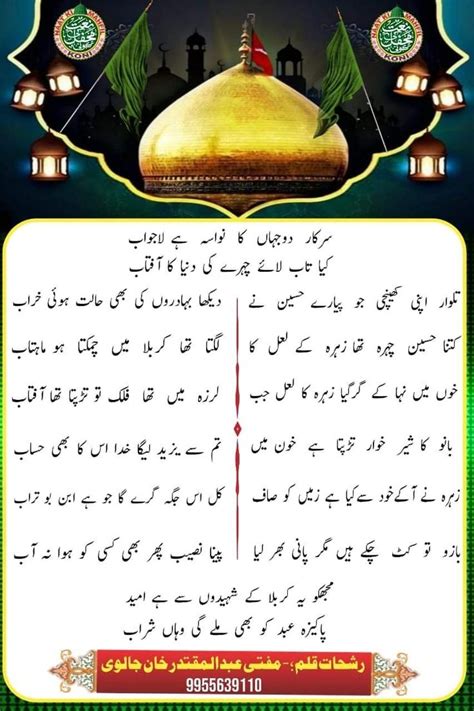 NAAT KI MAHFIL
محفل نعت
KONI
NAAT KI MAHFIL
محفل نعت
KONI
سرکار دوجہاں کا نواسہ ہے لاجواب
کیا تاب لائے چہرے کی دنیا کا آفتاب
تلوار اپنی کھینچی جو پیارے حسین نے
دیکھا بہادروں کی بھی حالت ہوئی خراب
کتنا حسین چہرہ تھا زہرہ کے لعل کا
لگتا تھا کربلا میں چمکتا ہو ماہتاب
خوں میں نہا کے گرگیا زہرہ کا لعل جب
لرزہ میں تھا فلک تو تڑپتا تھا آفتاب
بانو کا شیر خوار تڑپتا ہے خون میں
تم سے یزید لیگا خدا اس کا بھی حساب
زہرہ نے آکے خود سے کیا ہے زمیں کو صاف
کل اس جگہ گرے گا جو ہے ابن بو تراب
بازو تو کٹ چکے ہیں مگر پانی بھر لیا
پینا نصیب پھر بھی کسی کو ہوا نہ آب
مجھکو یہ کربلا کے شہیدوں سے ہے امید
پاکیزہ عبد کو بھی ملے گی وہاں شراب
رشحات قلم؛- مفتی عبدالمقتدر خان جالوی
9955639110